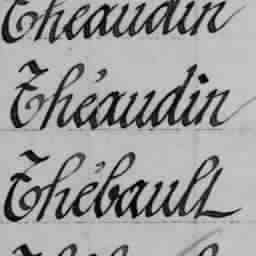 Théaudin
Théaudin
Thébault